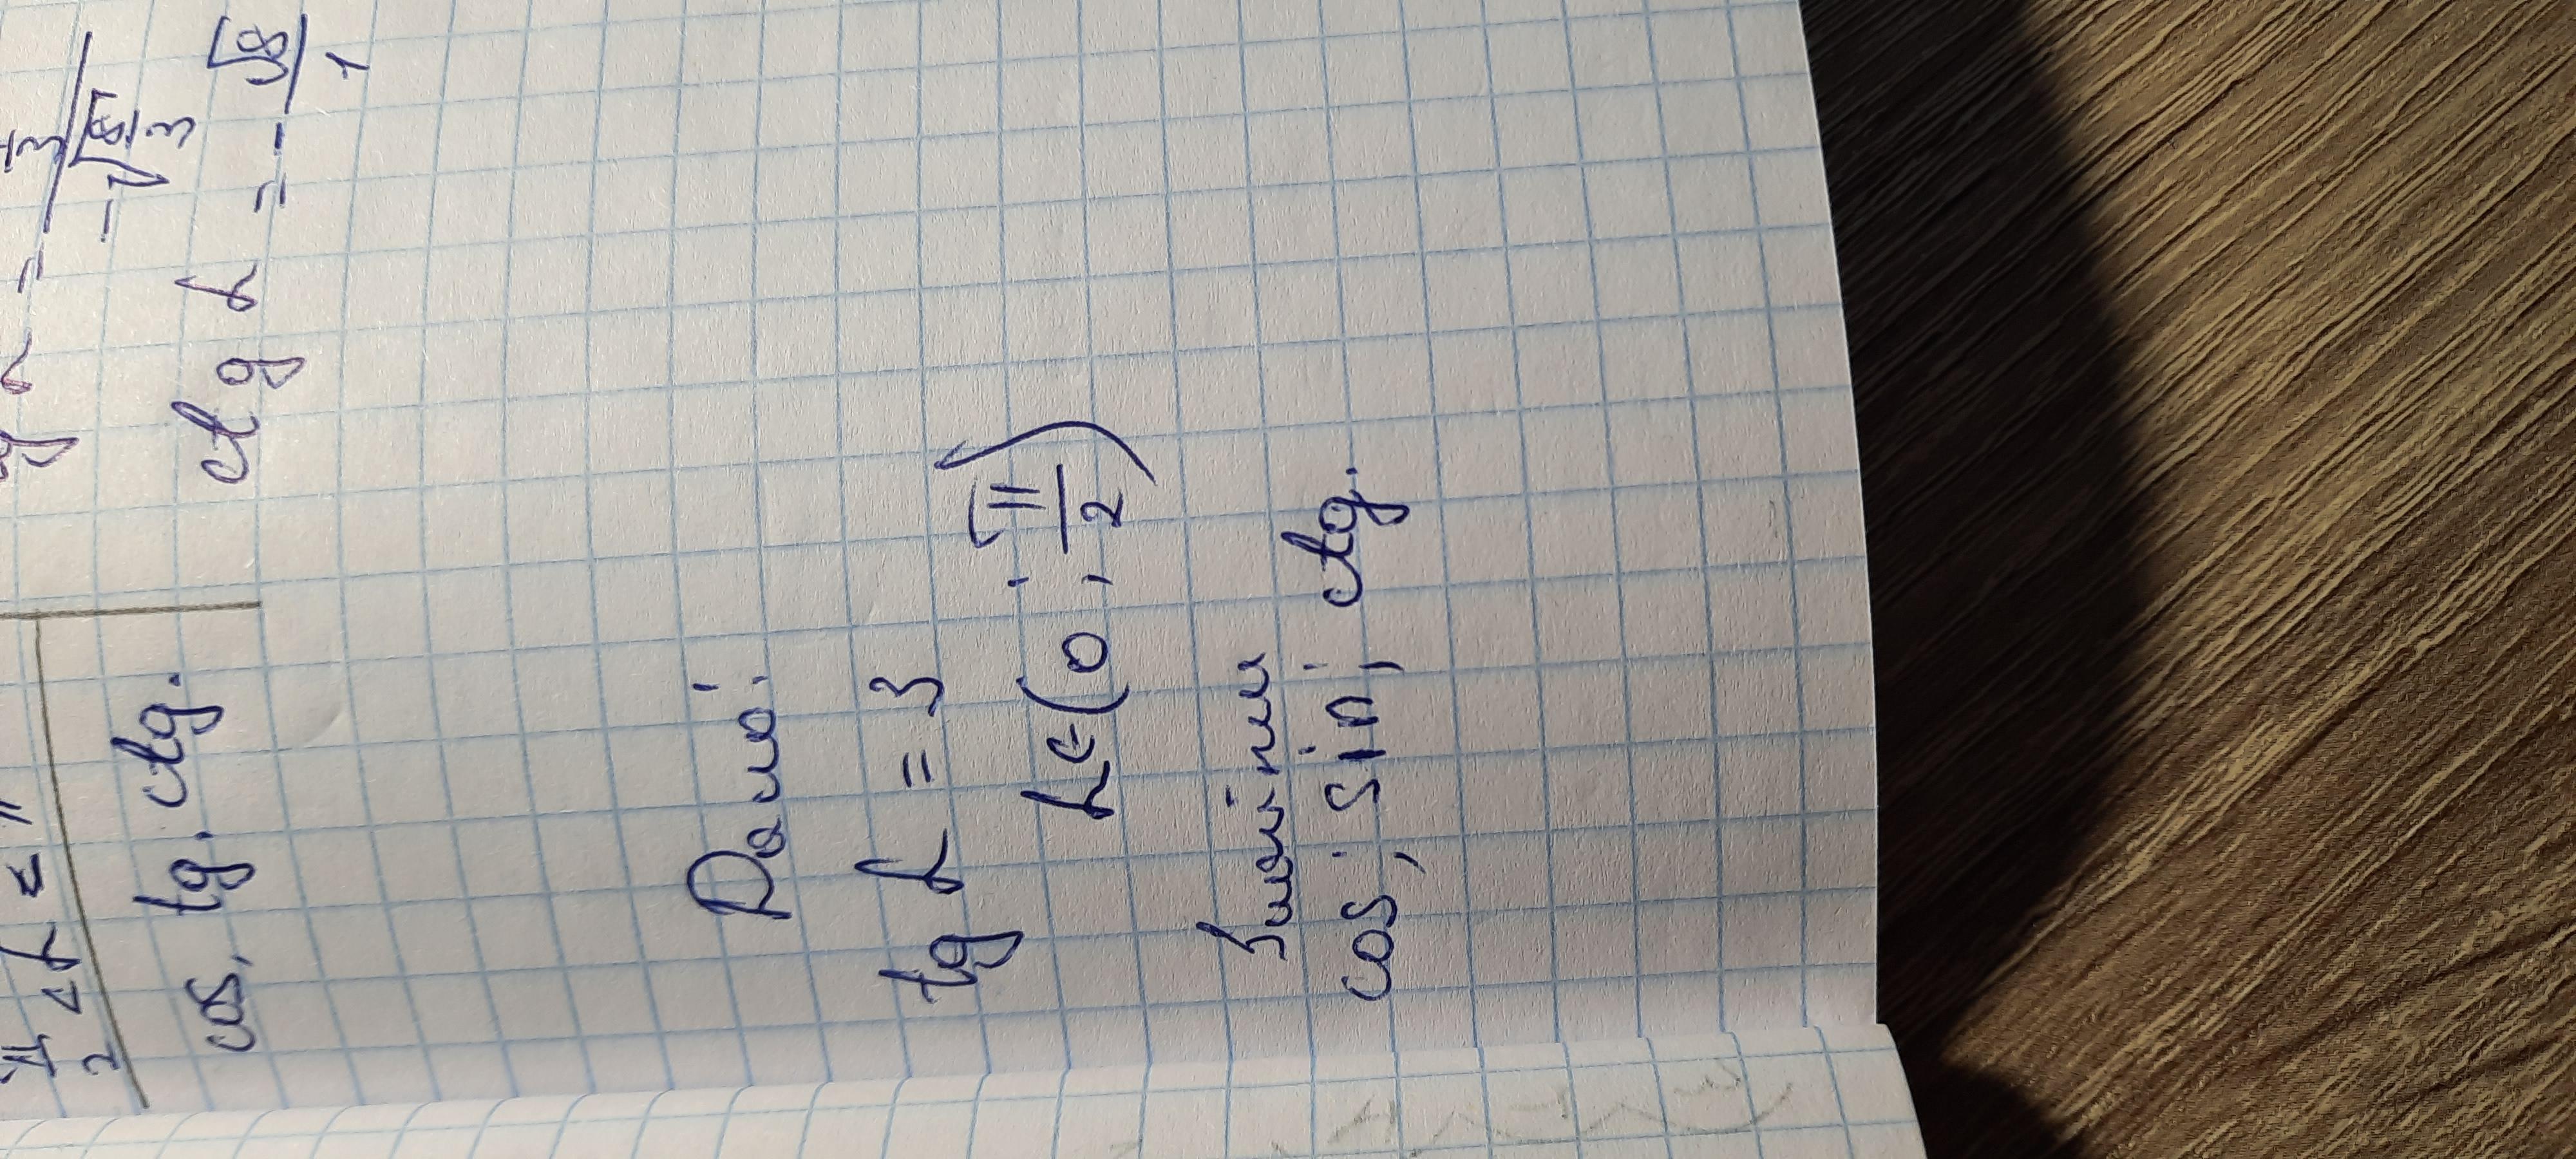 π/2 < α < π
cos, tg. ctg.
= 3
-√8/3
ctg α = - √8/1
Дано:
tg α = 3
α ∈ (0; π/2)
Знайти
cos; sin; ctg.